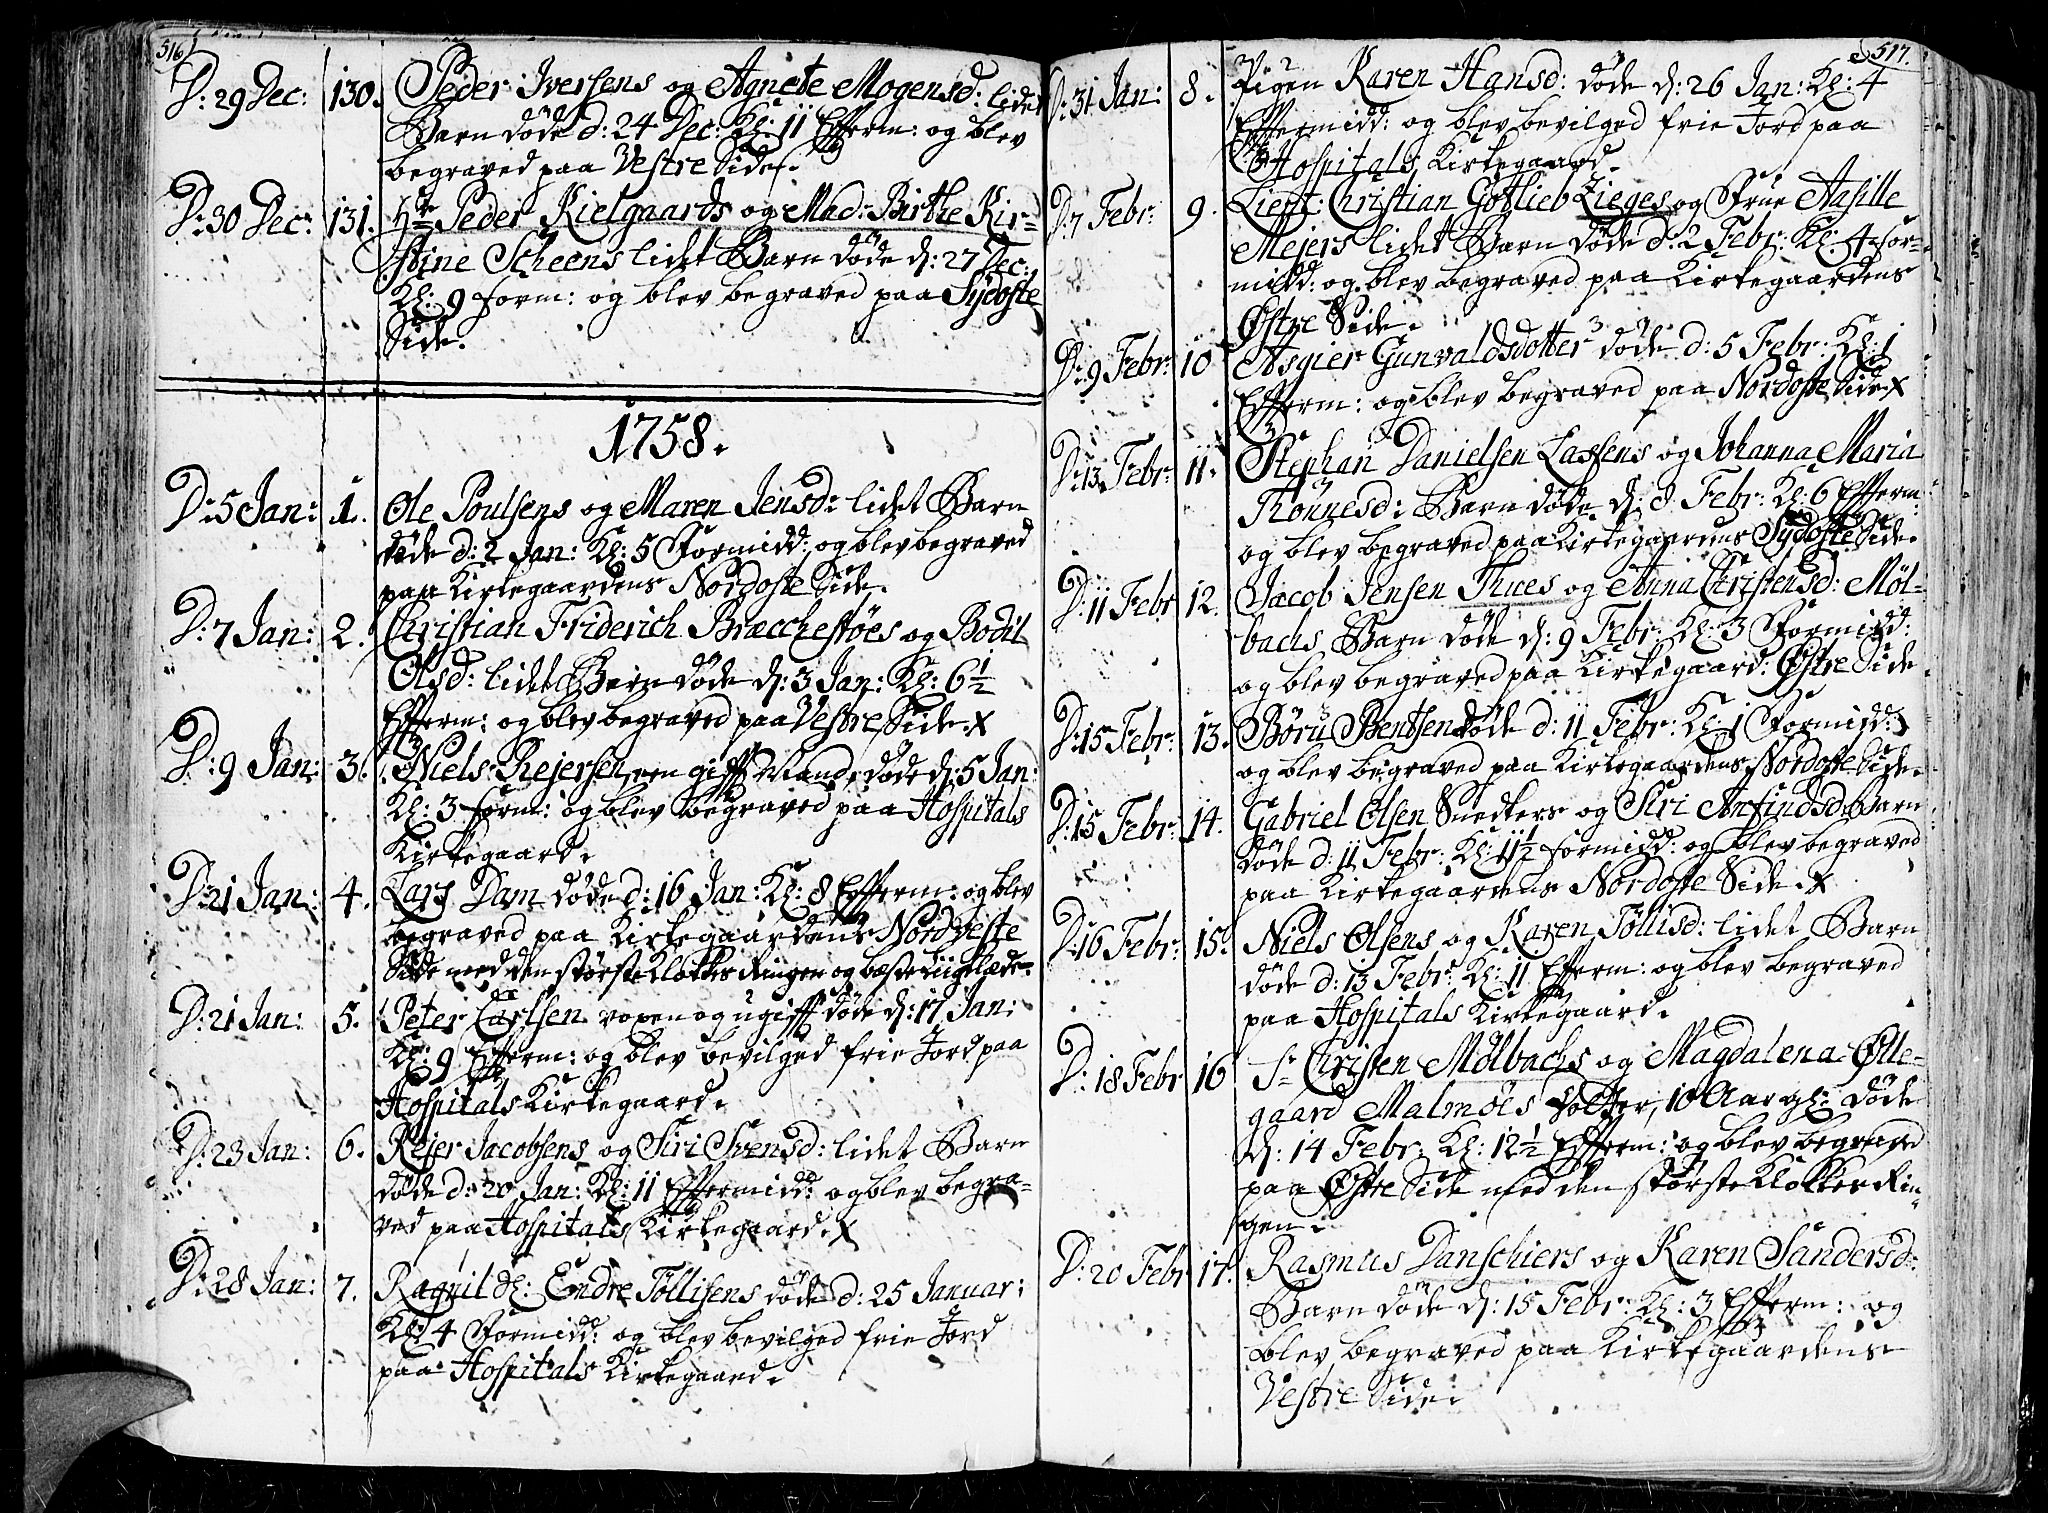 516
D: 29 Dec: 130. Peder Iversens og Agnete Mogensd: lidet
Barn døde d: 24 Dec: Kl: 11 Efterm: og blev
begraved paa Vestre Side.
D: 30 Dec: 131. Hr Peder Kielgaards og Mad: Birthe Kir-
stine Scheens lidet Barn døde d: 27 Dec:
Kl: 9 form: og blev begraved paa Sydoste
Side.
1758.
D: 5 Jan: 1. Ole Poulsens og Maren Jensd: lidet Barn
døde d: 2 Jan: Kl: 5 Formidd: og blev begraved
paa Kirkegaardens Nordoste Side.
D: 7 Jan: 2. Christian Friderich Bræcchestøes og Bodil
Olsd: lidet Barn døde d: 3 Jan: Kl: 6½
Efterm: og blev begraved paa Vestre Side. X
D: 9 Jan: 3. Niels Rejersen, en gift Mand, døde d: 5 Jan:
Kl: 3 form: og blev begraved paa Hospitals
Kirkegaard.
D: 21 Jan: 4. Lars Dam døde d: 16 Jan: Kl: 8 Efterm: og blev
begraved paa Kirkegaardens Nordveste
Side med den største Klokkes Ringen og beste Liigklæde.
D: 21 Jan: 5. Peter Carlsen voxen og ugift døde d: 17 Jan:
Kl: 9 Efterm: og blev bevilged frie Jord paa
Hospitals Kirkegaard.
D: 23 Jan: 6. Rejer Jacobsens og Siri Svensd: lidet Barn
døde d: 20 Jan: Kl: 11 Eftermidd: og blev begra-
ved paa Hospitals Kirkegaard. X
D: 28 Jan: 7. Ragnild Endre Töllisens døde d: 25 Januar:
Kl: 4 Formidd: og blev bevilged frie Jord
paa Hospitals Kirkegaard.
517.
D: 31 Jan: 8. Pigen Karen Hansd: døde d: 26 Jan: Kl: 4
Eftermidd: og blev bevilged frie Jord paa
Hospitals Kirkegaard.
D: 7 Febr: 9. Lieut: Christian Gotlieb Zieges og Frue Aasille
Mejers lidet Barn døde d: 2 Febr: Kl: 4 for-
midd: og blev begraved paa Kirkegaardens
Østre Side.
D: 9 Febr: 10 Asgier Gunvaldsdotter døde d: 5 Febr: Kl: 1
Efterm: og blev begraved paa Nordoste Side. X
D: 13 Febr: 11. Stephan Danielsen Lassens og Johanna Maria
Tönnesd: Barn døde d: 8 Febr: Kl: 6 Efterm:
og blev begraved paa Kirkegaardens Sydoste Side.
D: 11 Febr 12. Jacob Jensen Thues og Anna Christensd: Møl-
bachs Barn døde d: 9 Febr: Kl: 3 Formidd:
og blev begraved paa Kirkegaard: Østre Side.
D: 15 Febr: 13. Börü Bentsen døde d: 11 Febr: Kl: 1 Formidd:
og blev begraved paa Kirkegaardens Nordoste Side.
D: 15 Febr: 14. Gabriel Olsen Snedkers og Siri Anfindsd: Barn
døde d: 11 Febr: Kl: 11½ formidd: og blev begraved
paa Kirkegaardens Nordoste Side. X
D: 16 Febr: 15. Niels Olsens og Karen Töllisd: lidet Barn
døde d: 13 Febr: Kl: 11 Efterm: og blev begraved
paa Hospitals Kirkegaard.
D: 18 Febr 16 Sr Christen Mölbachs og Magdalena Olle-
gaard Malmöes Dotter, 10 Aar gl: døde
d: 14 Febr: Kl: 12½ Efterm: og blev begraved
paa Østre Side med den største Klokkes Rin-
gen.
D: 20 Febr 17. Rasmus Danschiers og Karen Sandersd:
Barn døde d: 15 Febr: Kl: 3 Efterm: og
blev begraved paa Kirkegaardens
Vestre Side.